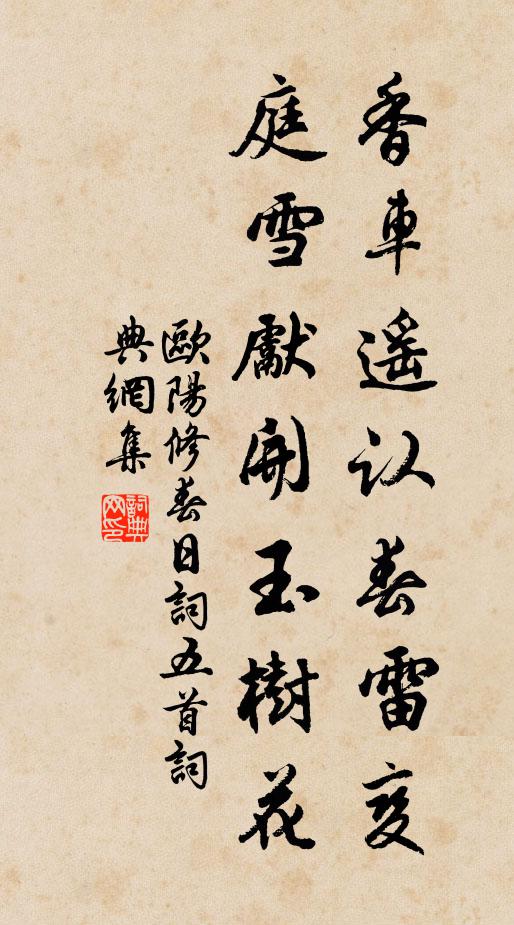 香車遥认春雷变
庭雪獻開玉樹花
歐陽修春日詞五首詞
典網集
詞典网印